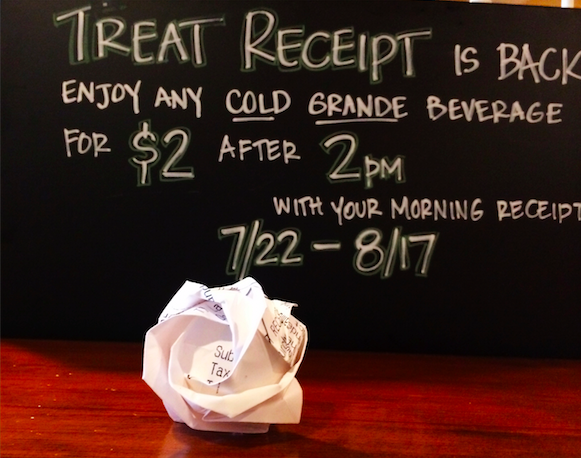 TREAT RECEIPT IS BACK
ENJOY ANY COLD GRANDE BEVERAGE
FOR $2 AFTER 2PM
WITH YOUR MORNING RECEIPT
7/22 - 8/17
Sub
Tax